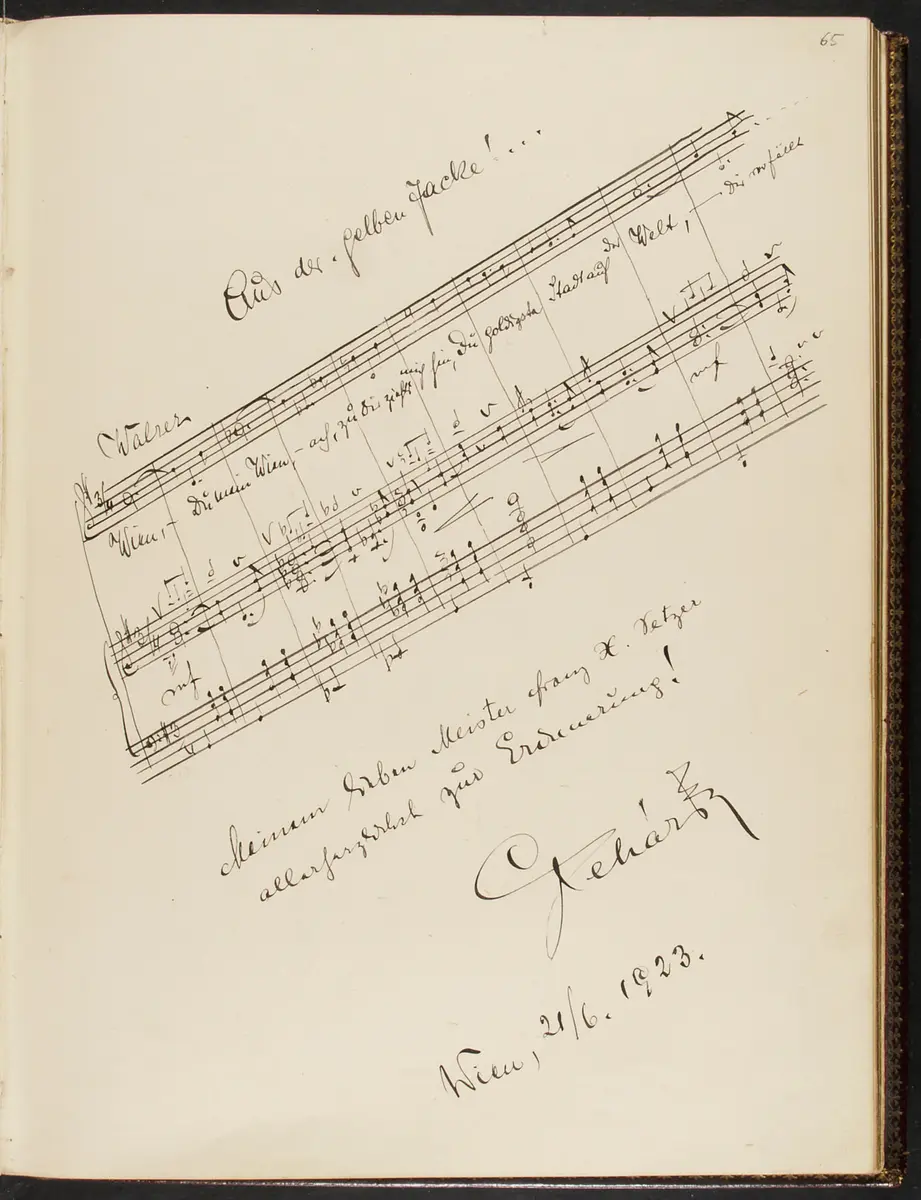 65
Aus der "gelben Jacke"! ...
Walzer
Wien, – Du mein Wien, – ach, zu Dir zieht's mich hin, Du goldigste Stadt auf der Welt, – Die
mf
mf
Meinem lieben Meister Franz X. Setzer
allerherzlichst zur Erinnerung!
Lehár
Wien, 21/6. 1923.